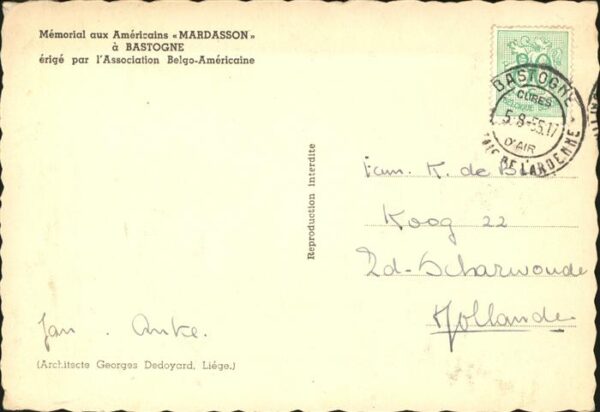 Mémorial aux Américains «MARDASSON»
à BASTOGNE
érigé par l'Association Belgo-Américaine
BELGIQUE
BASTOGNE
CURES
5-8-55.17
D'AIR
DE L'ARDENNE
Reproduction interdite
Fam. K. de
Koog 22
2d-Scharwoude
Hollande
Jan. Anke.
(Architecte Georges Dedoyard, Liége.)